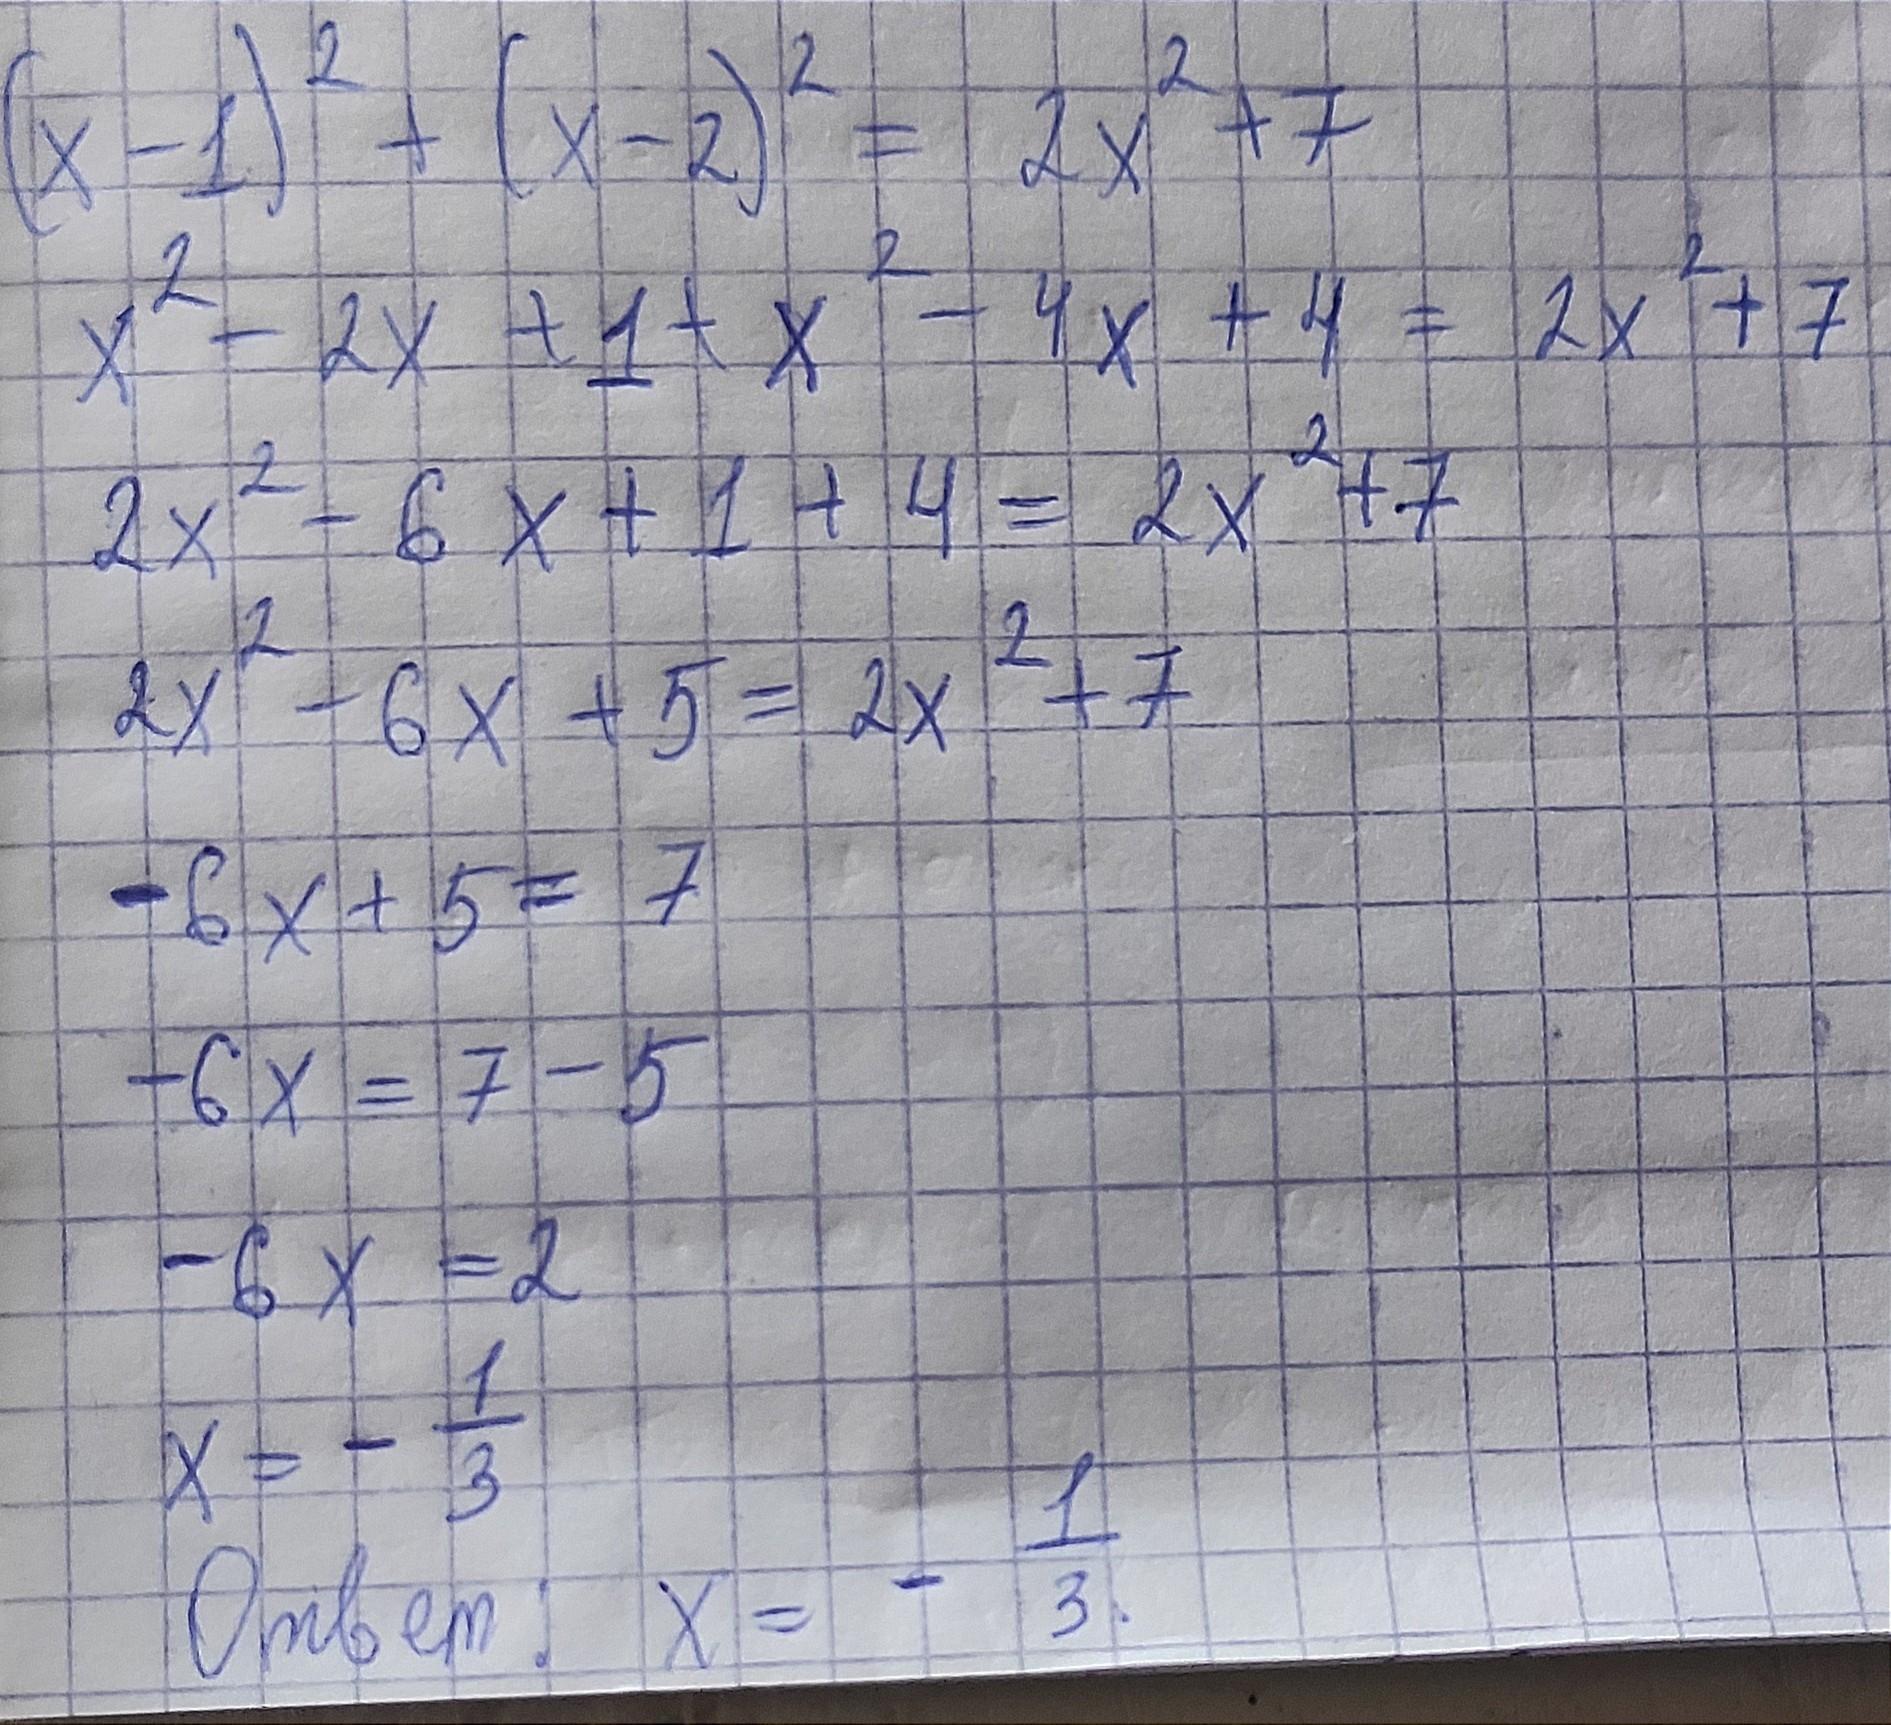 (x-1)² + (x-2)² = 2x² + 7
x² - 2x + 1 + x² - 4x + 4 = 2x² + 7
2x² - 6x + 1 + 4 = 2x² + 7
2x² - 6x + 5 = 2x² + 7
-6x + 5 = 7
-6x = 7 - 5
-6x = 2
x = - 1/3
Ответ: x = - 1/3.